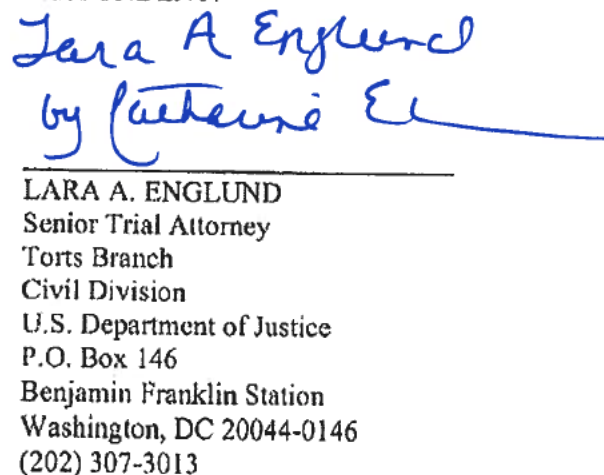 Lara A Englund
by Catherine E
LARA A. ENGLUND
Senior Trial Attorney
Torts Branch
Civil Division
U.S. Department of Justice
P.O. Box 146
Benjamin Franklin Station
Washington, DC 20044-0146
(202) 307-3013